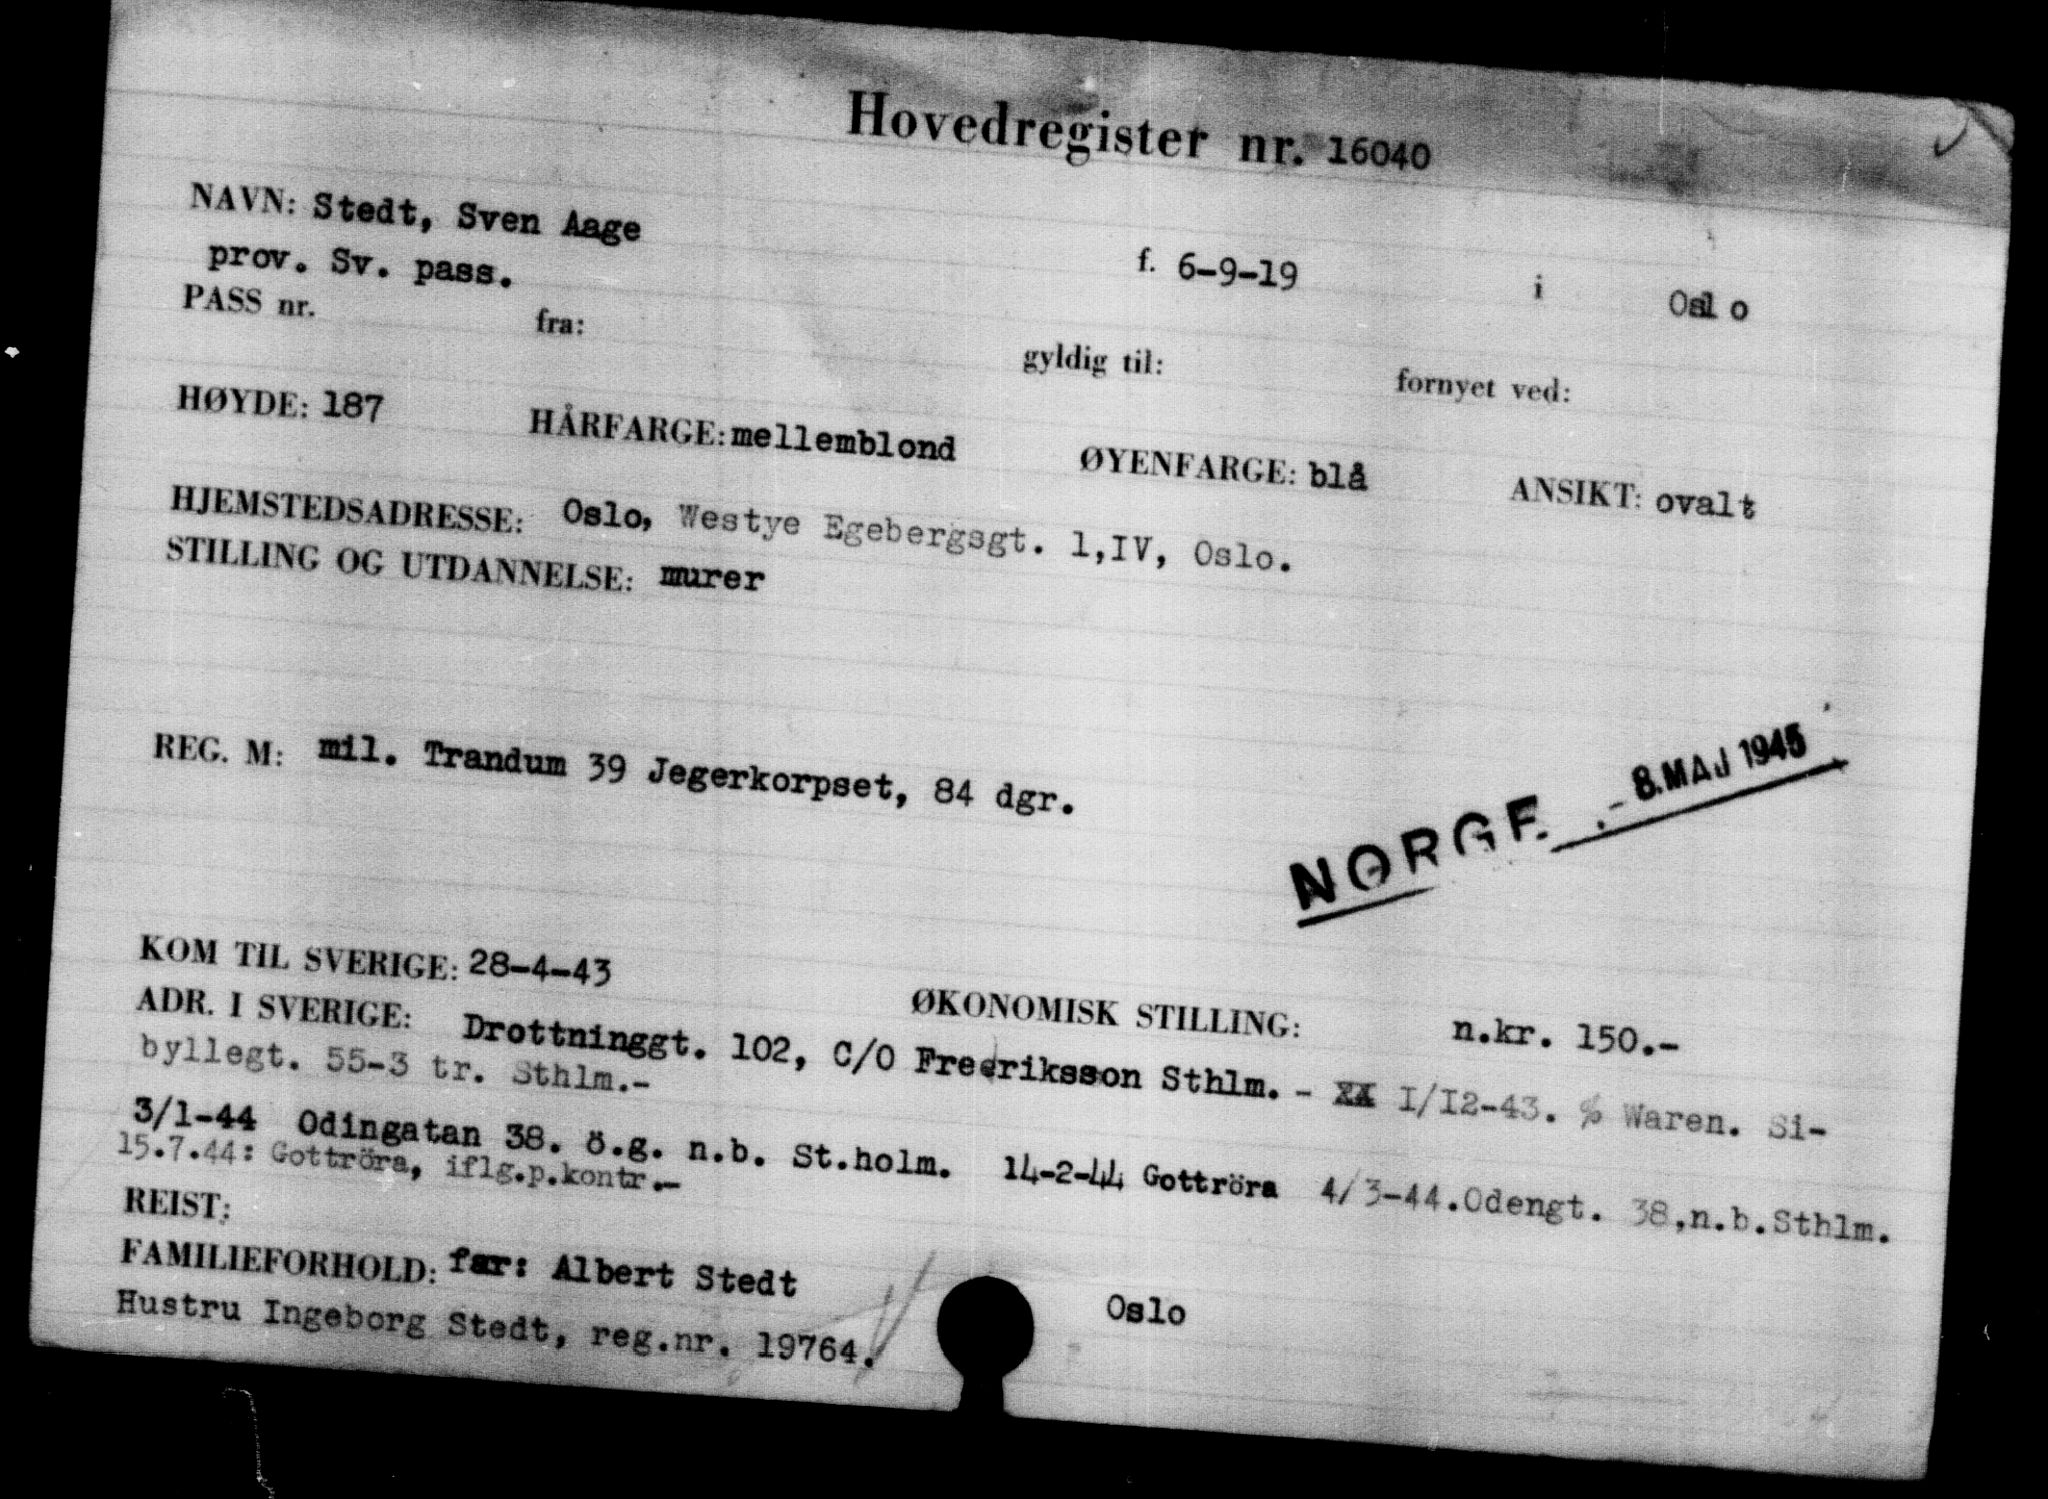 Hovedregister nr. 16040
NAVN: Stedt, Sven Aage f. 6-9-19 i Oslo
prov. Sv. pass.
PASS nr. fra: gyldig til: fornyet ved:
HØYDE: 187 HÅRFARGE: mellemblond ØYENFARGE: blå ANSIKT: ovalt
HJEMSTEDSADRESSE: Oslo, Westye Egebergsgt. 1,IV, Oslo.
STILLING OG UTDANNELSE: murer
REG. M: mil. Trandum 39 Jegerkorpset, 84 dgr.
NORGE - 8. MAJ 1945
KOM TIL SVERIGE: 28-4-43 ØKONOMISK STILLING: n.kr. 150.-
ADR. I SVERIGE: Drottninggt. 102, C/O Fredriksson Sthlm. - XX I/I2-43. c/o Waren. Si-
byllegt. 55-3 tr. Sthlm.-
3/1-44 Odingatan 38. ö.g. n.b. St.holm. 14-2-44 Gottröra 4/3-44. Odengt. 38, n.b. Sthlm.
15.7.44: Gottröra, iflg.p.kontr.-
REIST:
FAMILIEFORHOLD: far: Albert Stedt Oslo
Hustru Ingeborg Stedt, reg.nr. 19764.